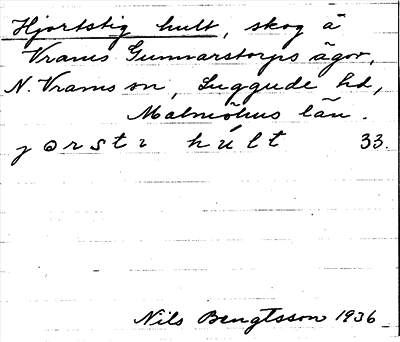 Hjortstig hult, skog å
Vrams Gunnarstorps ägor,
N. Vrams sn, Luggude hd,
Malmöhus län.
jorsti húlt 33.
Nils Bengtsson 1936